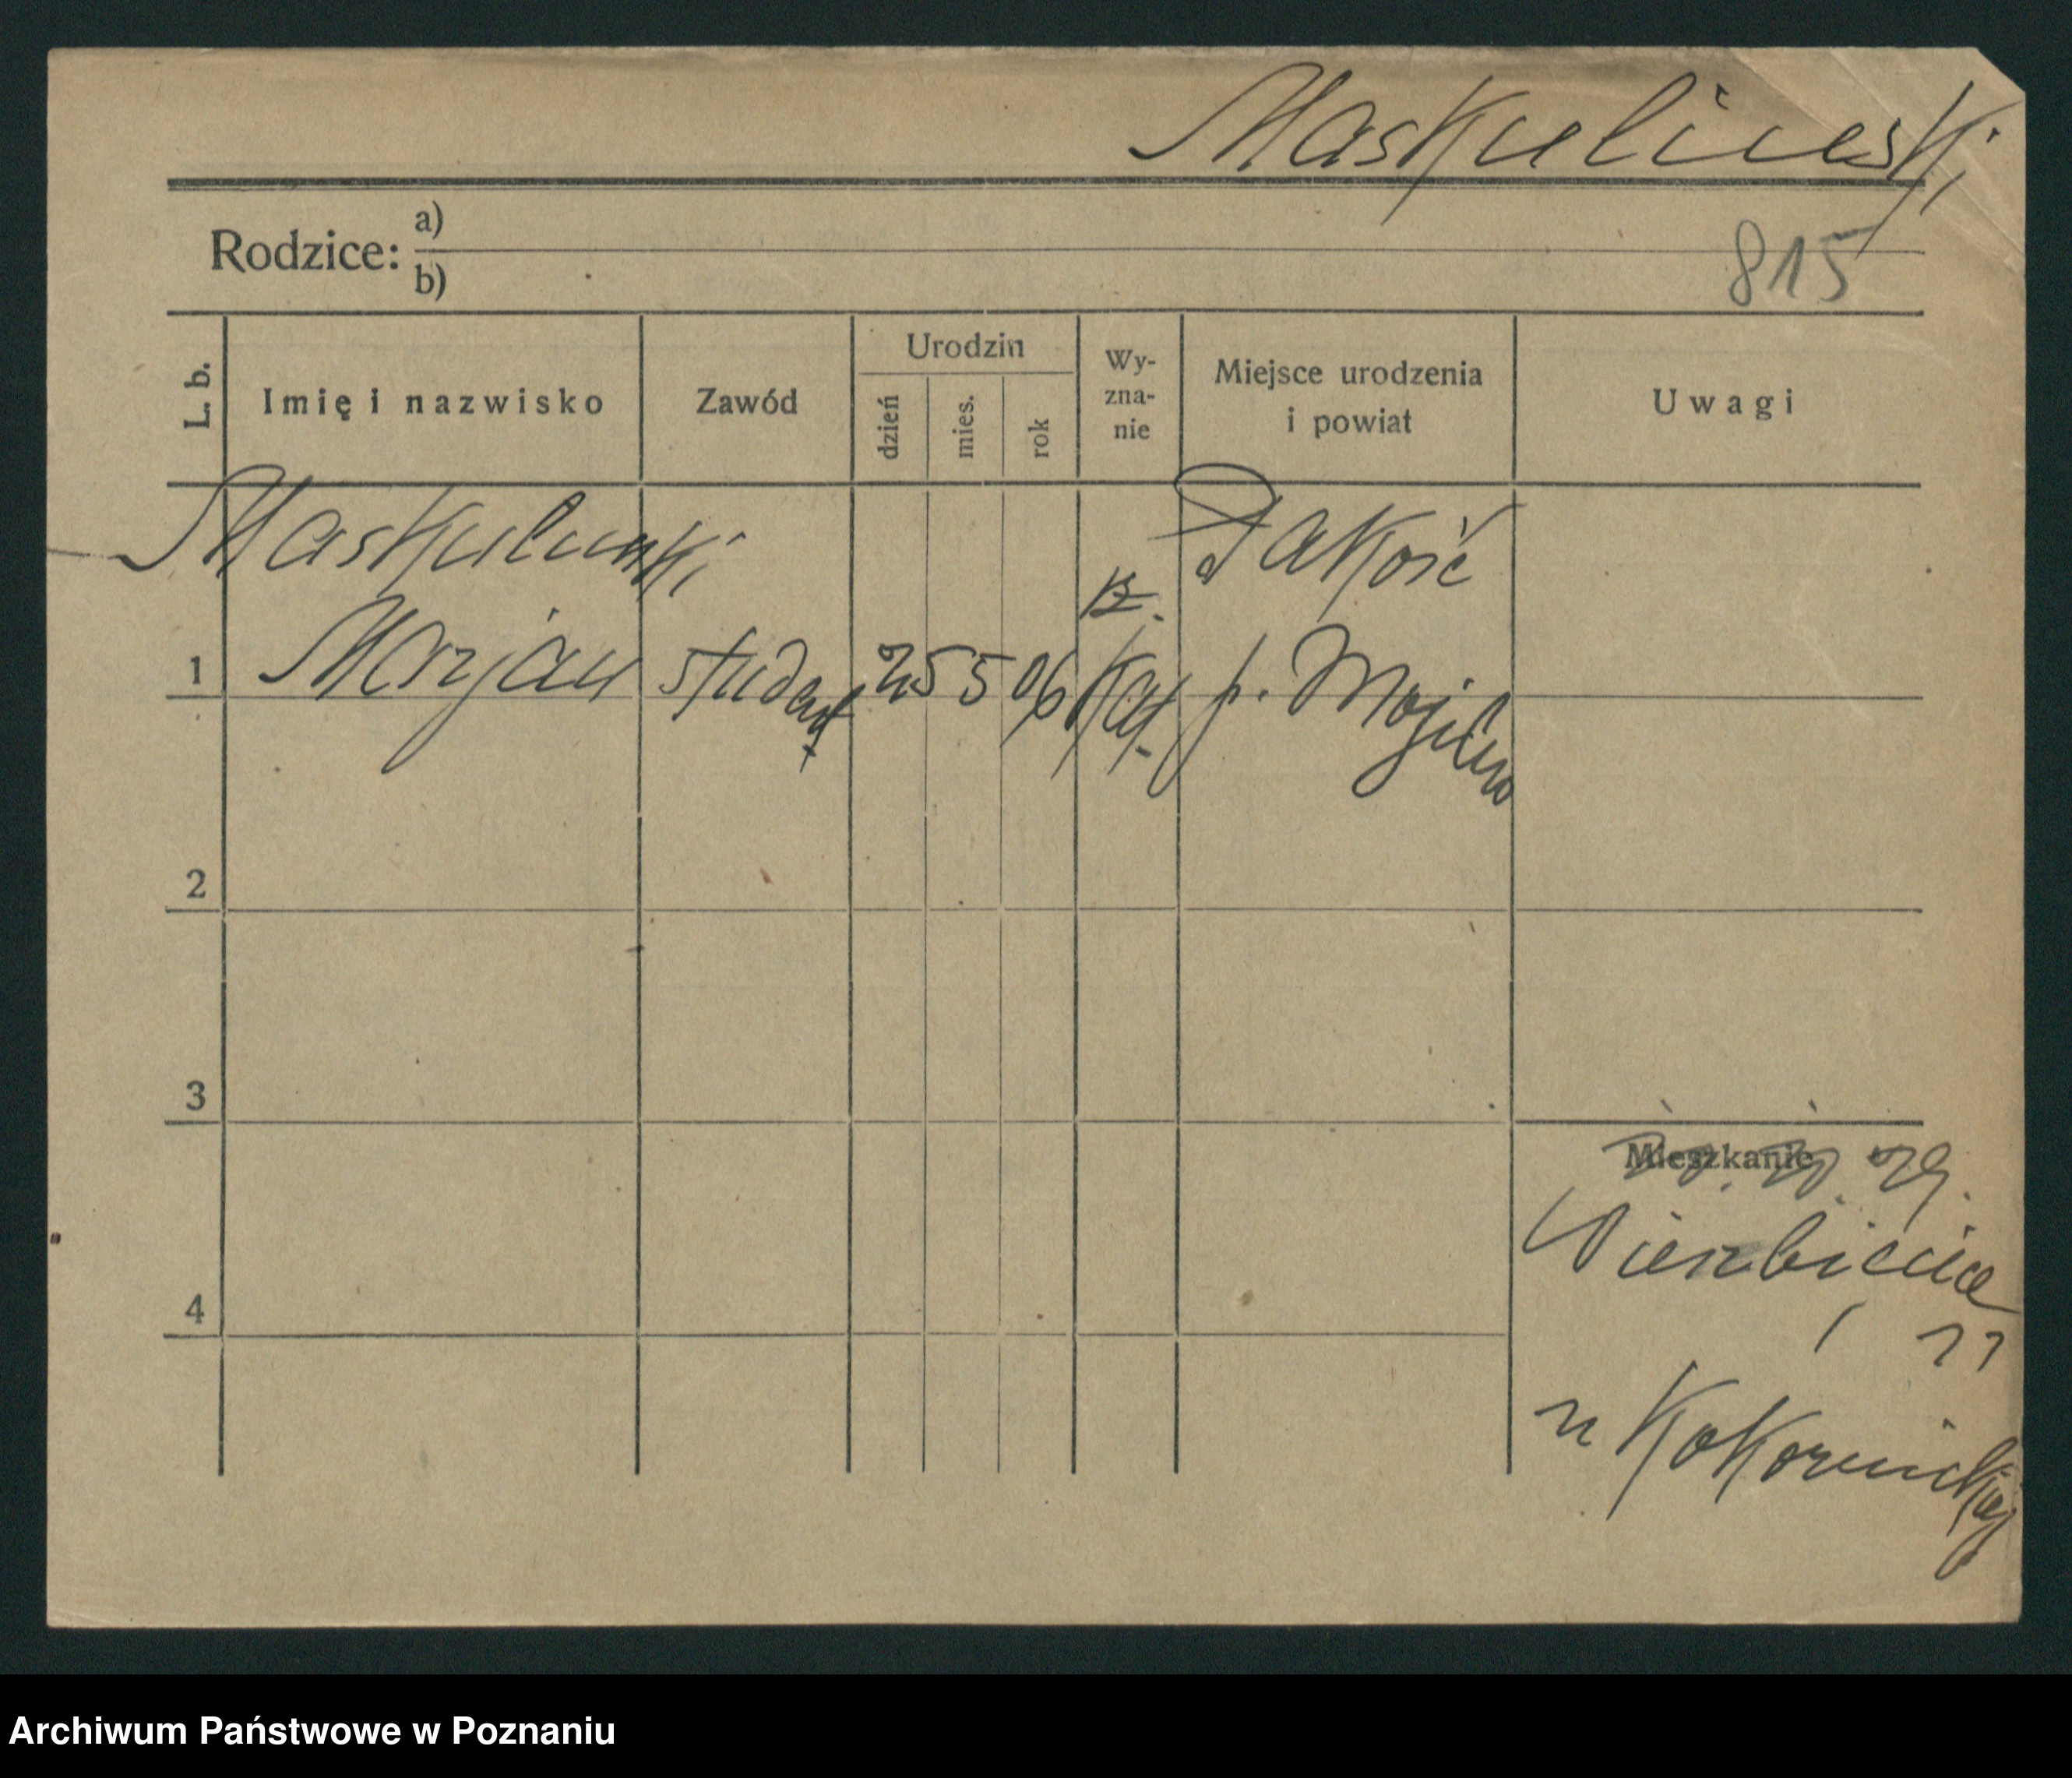 Maskuliński
Rodzice: a)
b)
815
L. b.
Imię i nazwisko
Zawód
Urodzin
dzień
mies.
rok
Wy-
zna-
nie
Miejsce urodzenia
i powiat
Uwagi
Maskuliński
Pakość
1 Marjan student 25 5 06 kat p. Mogilno
2
3
Mieszkanie
29.
Wierzbięcice
4
11
u Kokornickiej
Archiwum Państwowe w Poznaniu